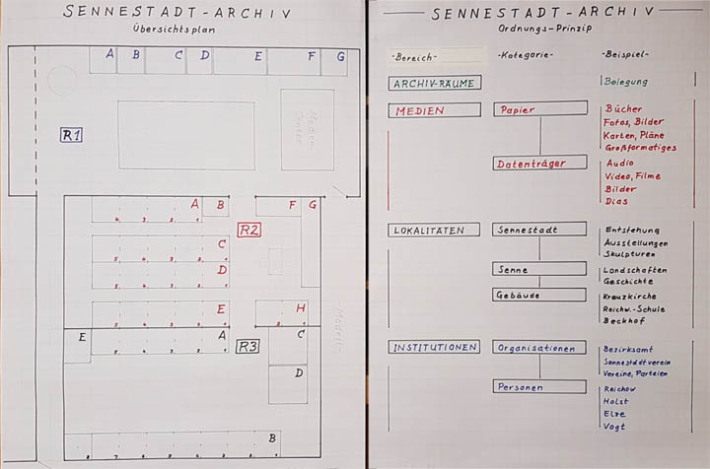 SENNESTADT-ARCHIV
Übersichtsplan
A B C D E F G
R1
A B F G
R2
C
D
E H
E A C
R3
D
B
SENNESTADT-ARCHIV
Ordnungs-Prinzip
-Bereich- -Kategorie- -Beispiel-
ARCHIV-RÄUME Belegung
MEDIEN Papier Bücher
Fotos, Bilder
Karten, Pläne
Großformatiges
Datenträger Audio
Video, Filme
Bilder
Dias
LOKALITÄTEN Sennestadt Entstehung
Ausstellungen
Skulpturen
Senne Landschaften
Geschichte
Gebäude Kreuzkirche
Reichw.-Schule
Beckhof
INSTITUTIONEN Organisationen Bezirksamt
Sennestadtverein
Vereine, Parteien
Personen Reichow
Holst
Else
Vogt